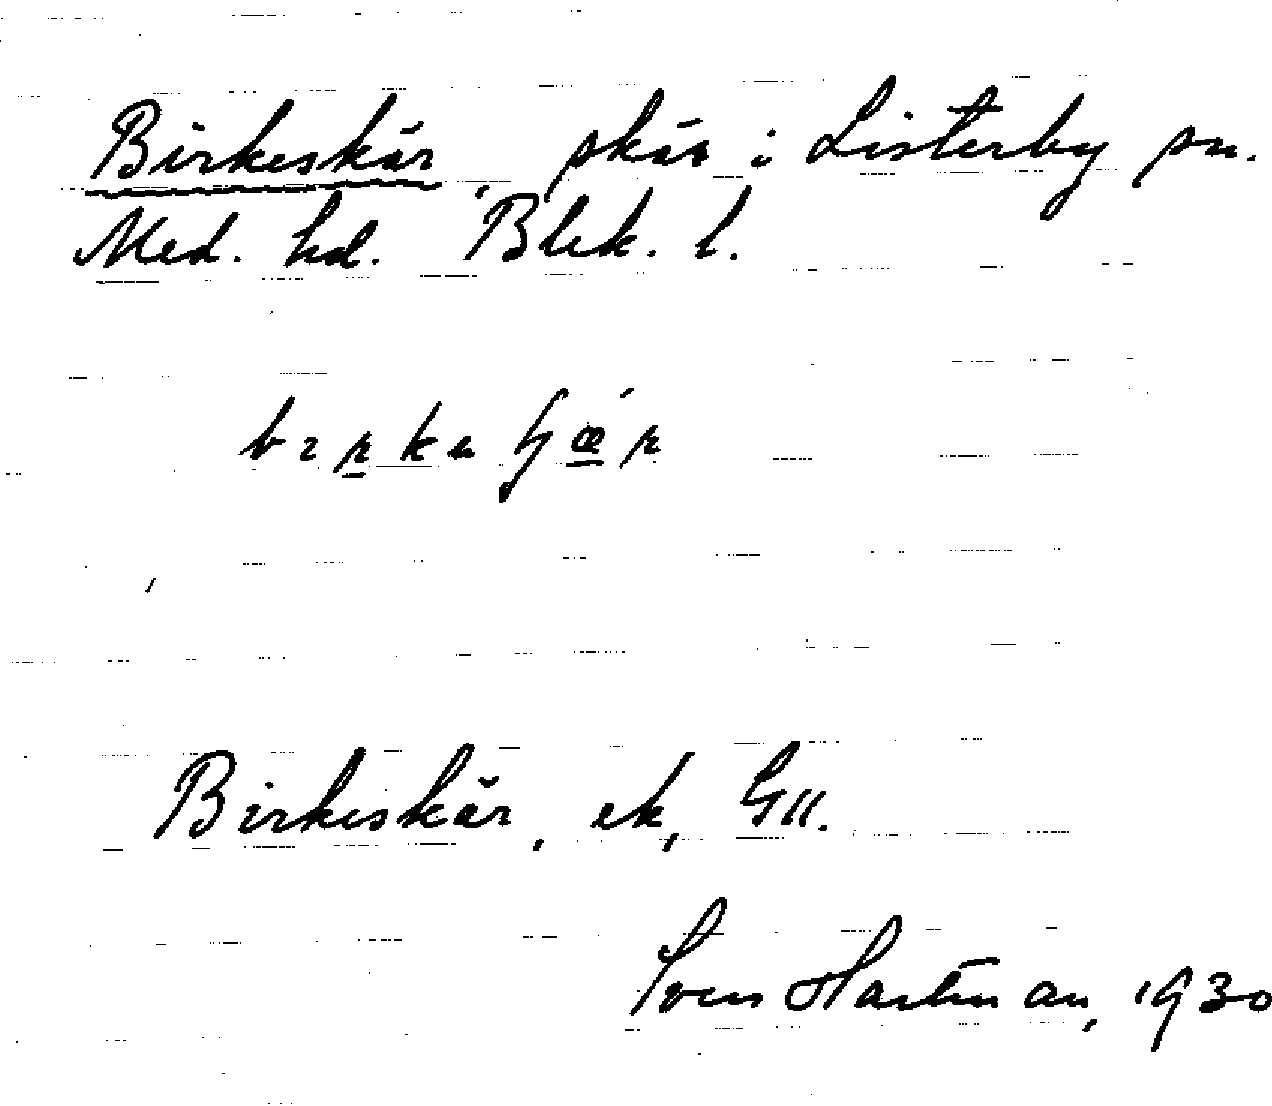 Birkeskär, skär i Listerby sn.
Med. hd. Blek. l.
Birkeskär, ek, GII.
Sven Hartman, 1930